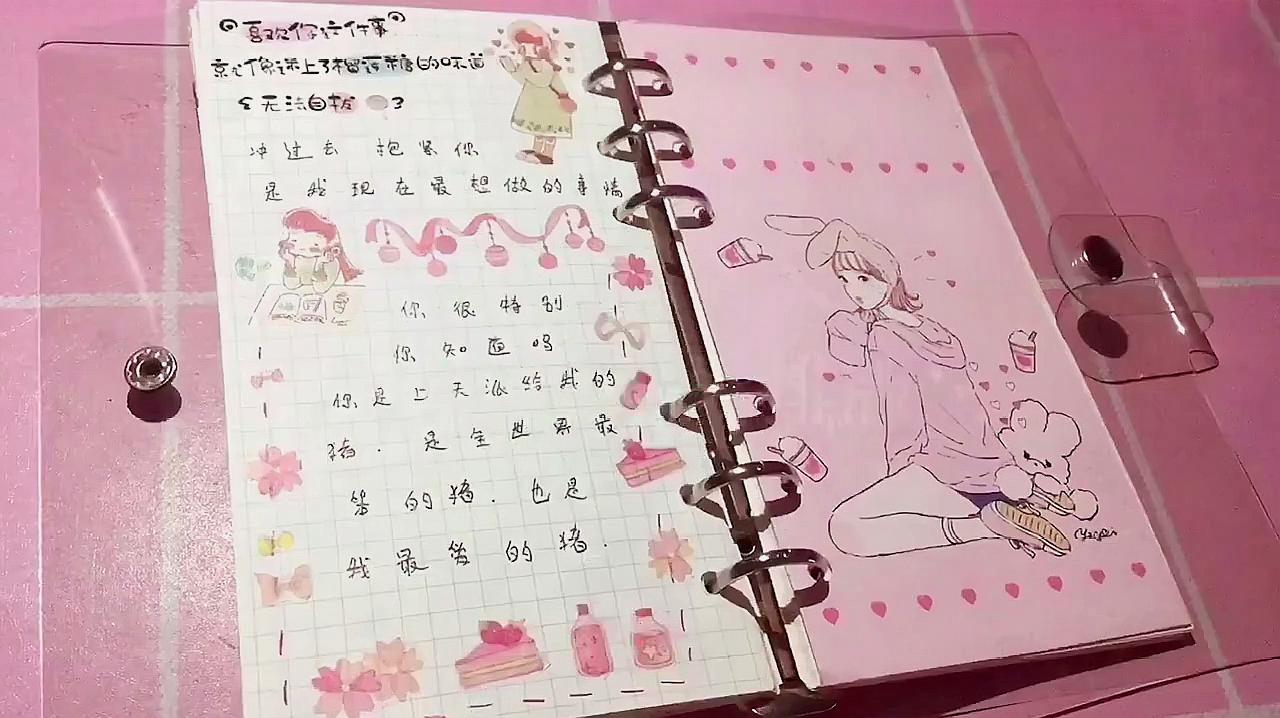 喜欢你这件事
就像迷上了榴莲糖的味道
无法自拔
冲过去 抱紧你
是我现在最想做的事情
你很特别
你知道吗
你是上天派给我的
猪.是全世界最
笨的猪.也是
我最爱的猪.